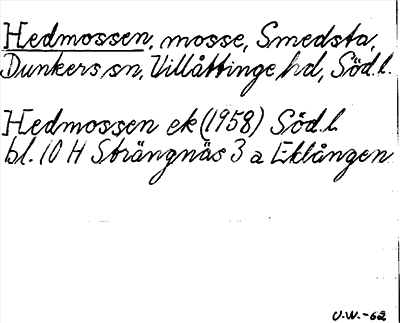 Hedmossen, mosse, Smedsta,
Dunkers sn, Villåttinge hd, Söd.l.
Hedmossen ek (1958) Söd.l.
bl. 10 H Strängnäs 3 a Eklången
U.W.-62